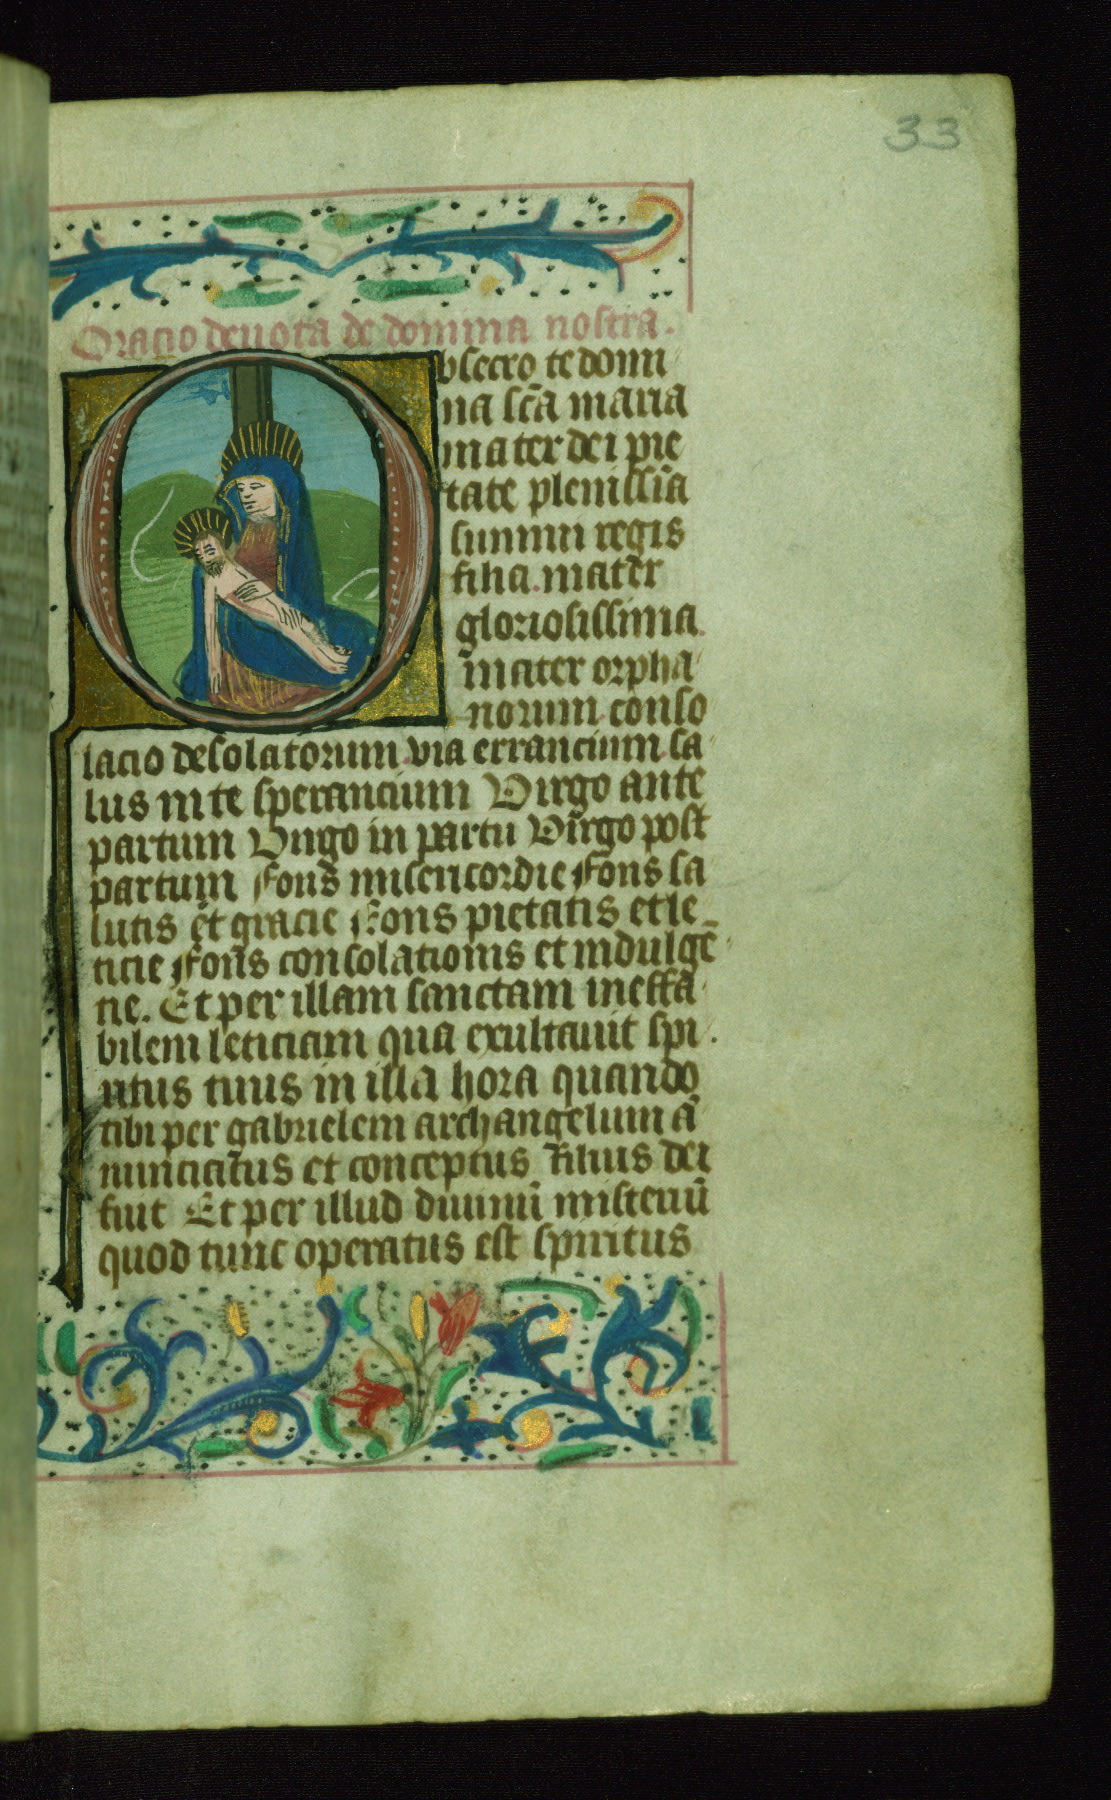 33
Oracio deuota de domina nostra.
Obsecro te domi
na sc̄a maria
mater dei pie
tate plenissīa
summi regis
filia. mater
gloriosissima.
mater orpha
norum. conso
lacio desolatorum. via errancium. sa
lus in te sperancium Virgo ante
partum Virgo in partu Virgo post
partum Fons misericordie Fons sa
lutis et gracie Fons pietatis et le
ticie Fons consolationis et indulgē
tie. Et per illam sanctam ineffa
bilem leticiam qua exultauit spi
ritus tuus in illa hora quando
tibi per gabrielem archangelum ā
nunciatus et conceptus filius dei
fuit Et per illud diuinū misteriū
quod tunc operatus est spiritus